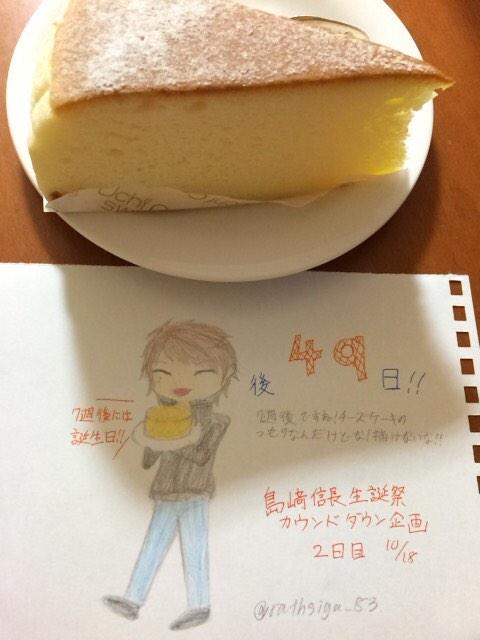 Uchi
後 49 日!!
7週後には
誕生日!!
7週後ですね!チーズケーキの
つもりなんだけどな!描けないな!!
島﨑信長生誕祭
カウンドダウン企画
2日目 10/18
@rathsigu_53